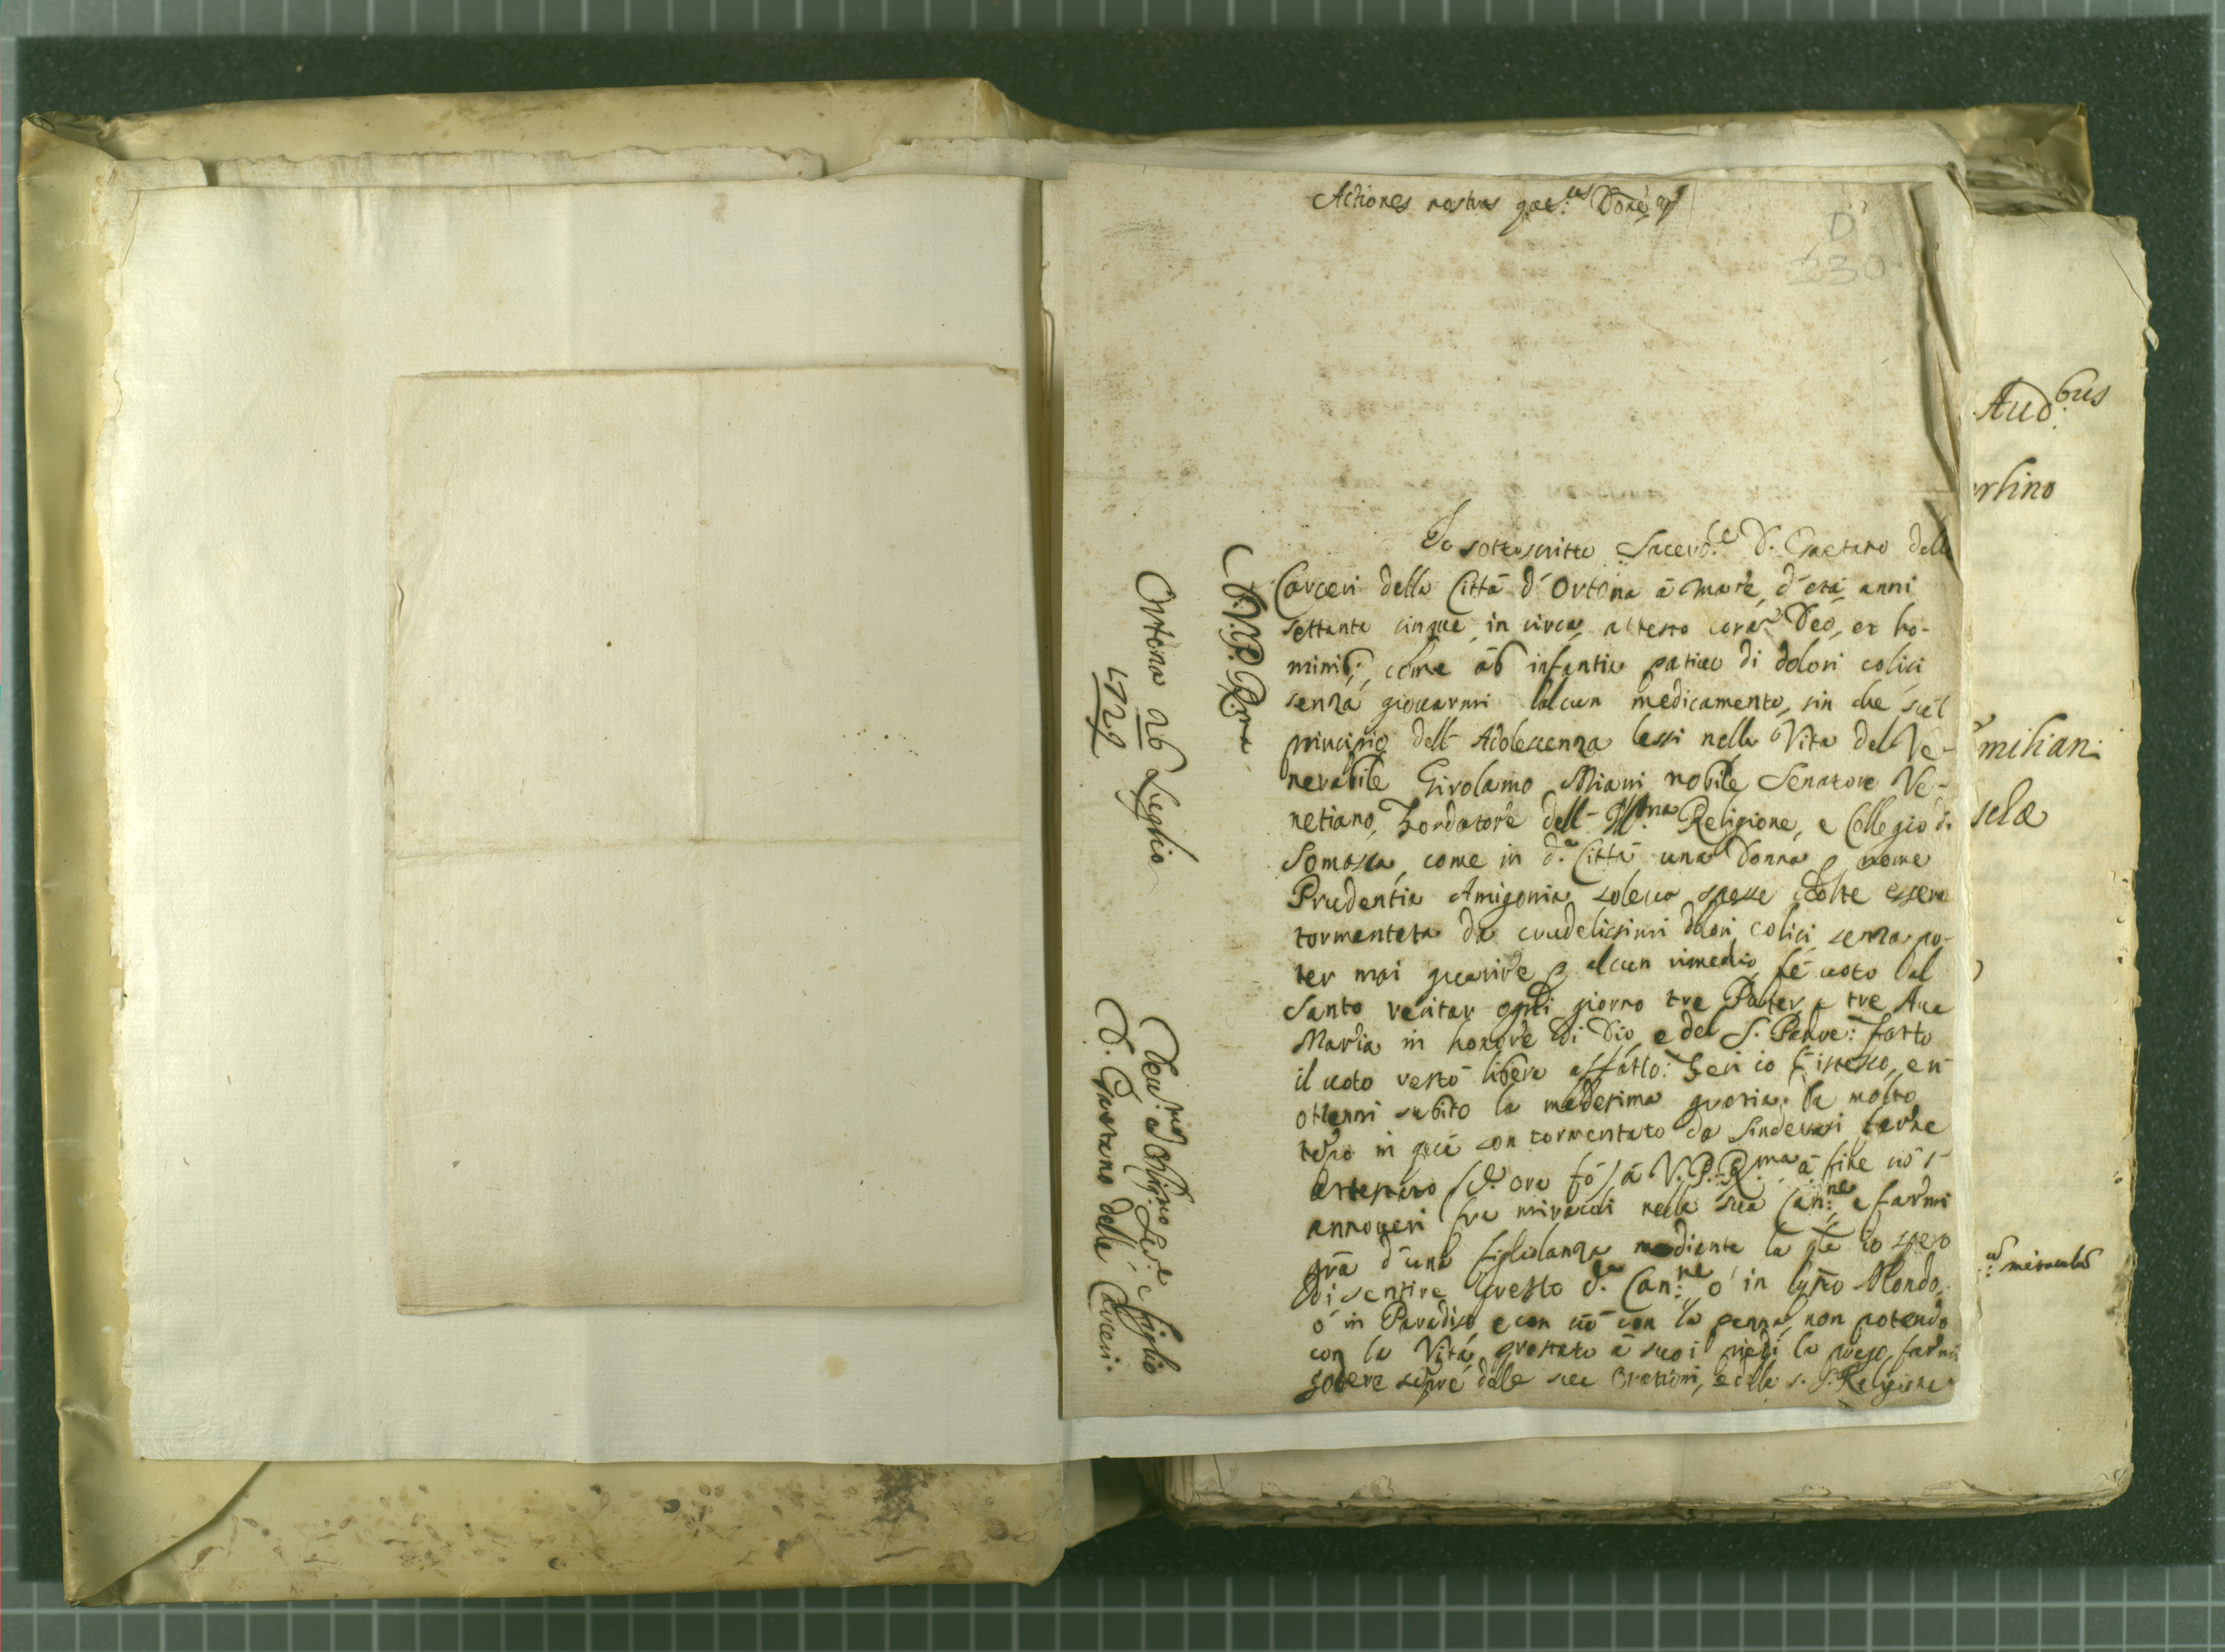 Actiones nostras quæs.us Done
D
230
Io sottoscritto Sacerd.e D. Gaetano delle
Carceri della Città d' Ortona à Mare, d'età anni
settanta cinque in circa, attesto corā Deo, et ho-
minib; come ab infantia patiuo di dolori colici
senza giouarmi alcun medicamento, sin che sul
principio dell' Adolescenza lessi nella Vita del Ve-
nerabile Girolamo Miani nobile Senatore Ve-
netiano, Fondatore dell' Ill.ma Religione, e Collegio di
Somasca, come in d.a Città una Donna nome
Prudentia Amigonia soleua spesse uolte essere
tormentata da crudelissimi dolori colici, senza po-
ter mai guarire alcun rimedio, fè uoto al
Santo recitar ogni giorno tre Pater, e tre Aue
Maria in honore di Dio, e del S. Padre: fatto
il uoto restò libera affatto: Feci io l'istesso, ed
ottenni subito la medesima gratia. Da molto
tēpo in quà son tormentato da
(d. ora fò) à V.P. R.ma à fine
annoueri fra miracoli nella sua Can.ne e farmi
grā d'una figliolanza mediante la io spero
di sentire questa d.a Can.ne ò in Mondo,
ò in Paradiso, e con con la penna, non potendo
con la Vita, prostrato à suoi piedi la priego, farmi
godere sēpre delle sue orationi, e della s. Religione
V.P. R.ma
Ortona ab Luglio
1729
Deu.mo Oblig.mo Ser.e e figlio
D. Gaetano delle Carceri.
Aud.bus
rtino
miliani
selæ
miraculis